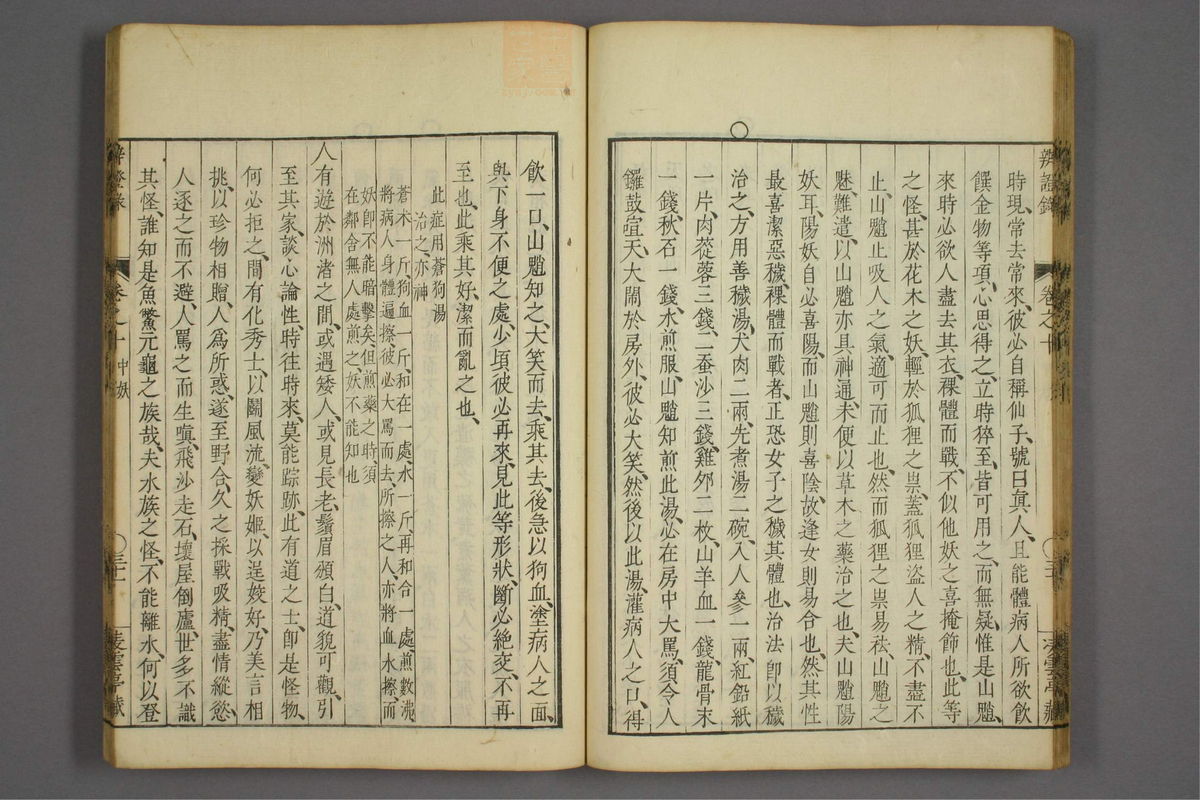 辨證錄
卷之十
時現、常去常來、彼必自稱仙子、號曰眞人、且能體病人所欲飲
饌金物等項、心思得之、立時猝至、皆可用之、而無疑、惟是山魈、
來時必欲人盡去其衣、裸體而戰、不似他妖之喜掩飾也、此等
之怪、甚於花木之妖、輕於狐狸之祟、蓋狐狸盜人之精、不盡不
止、山魈止吸人之氣、適可而止也、然而狐狸之祟易祛、山魈之
魅、難遣、以山魈亦具神通、未便以草木之藥治之也、夫山魈陽
妖耳、陽妖自必喜陽、而山魈則喜陰、故逢女則易合也、然其性
最喜潔惡穢、裸體而戰者、正恐女子之穢其體也、治法卽以穢
治之、方用善穢湯、犬肉二兩、先煮湯二碗、入人參一兩、紅鉛紙
一片、肉蓯蓉三錢、二蠶沙三錢、雞卵二枚、山羊血一錢、龍骨末
一錢、秋石一錢、水煎服、山魈知煎此湯、必在房中大罵、須令人
鑼鼓喧天、大鬧於房外、彼必大笑、然後以此湯、灌病人之口、得
飲一口、山魈知之、大笑而去、乘其去後、急以狗血、塗病人之面、
與下身不便之處、少頃彼必再來、見此等形狀、斷必絕交、不再
至也、此乘其好潔而亂之也、
此症用蒼狗湯
治之、亦神
蒼朮一斤、狗血一斤、和在一處、水一斤、再和合一處、煎數沸、
將病人身體遍擦、彼必大罵而去、所擦之人、亦將血水擦、而
妖卽不能暗擊矣、但煎藥之時、須
在鄰舍無人處煎之、妖不能知也
人有遊於洲渚之間、或遇矮人、或見長老、鬚眉頒白、道貌可觀、引
至其家、談心論性、時往時來、莫能踪跡、此有道之士、卽是怪物、
何必拒之、間有化秀士、以鬭風流、變妖姬、以逞姣好、乃美言相
挑、以珍物相贈、人爲所惑、遂至野合、久之採戰吸精、盡情縱慾、
人逐之而不避、人罵之而生嗔、飛沙走石、壞屋倒廬、世多不識
其怪、誰知是魚鱉元龜之族哉、夫水族之怪、不能離水、何以登
辨證錄
卷之十　中妖